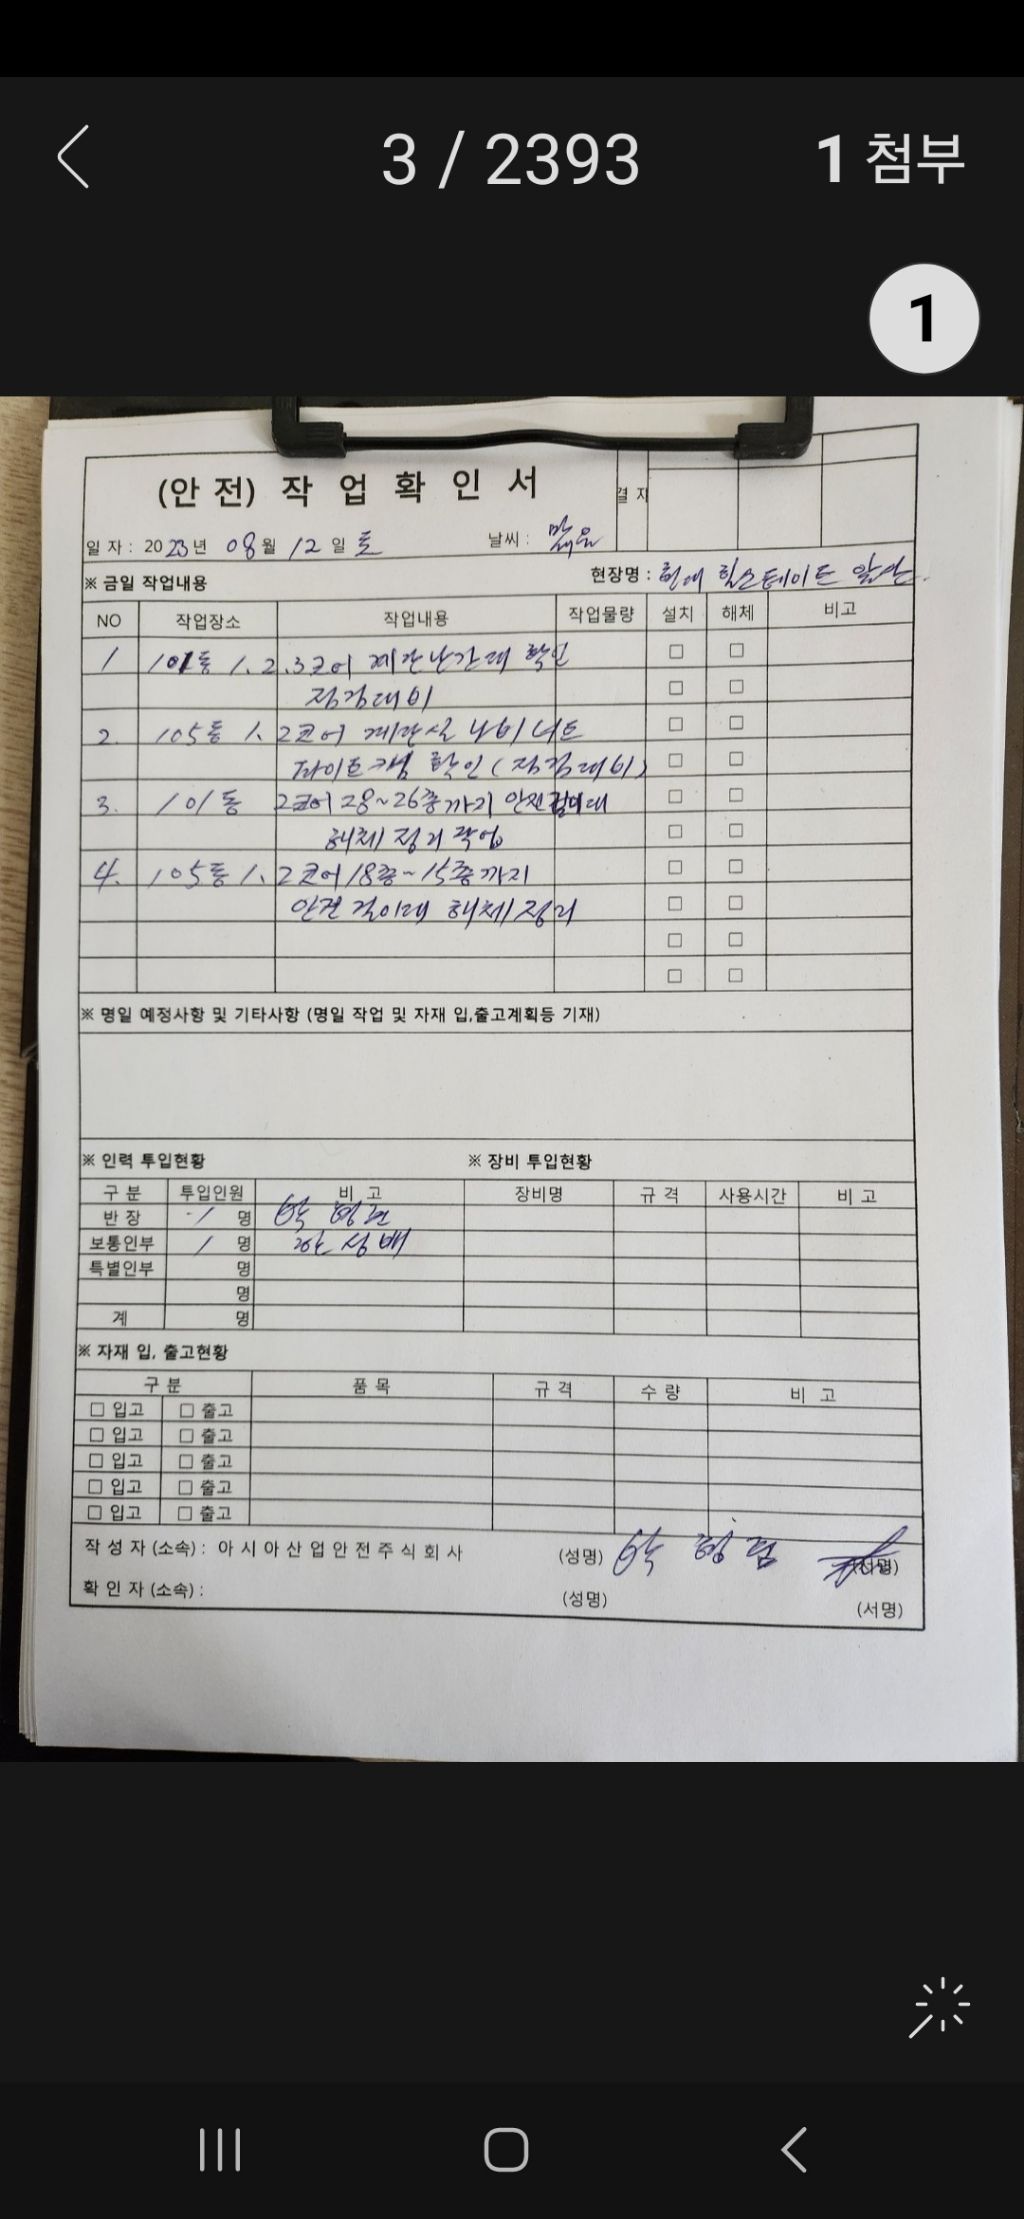 3 / 2393
1 첨부
1
(안 전) 작 업 확 인 서
결 재
일 자 : 2023년 08월 12일 토 날씨 : 맑음
※ 금일 작업내용 현장명 : 현대 힐스테이트
NO 작업장소 작업내용 작업물량 설치 해체 비고
1 101동 1.2.3코어 계단난간대 확인 □ □
점검대비 □ □
2. 105동 1. 2코어 계단실 나비너트 □ □
파이프캡 확인 (점검대비) □ □
3. 101동 2코어 28~26층까지 안전 □ □
해체 정리 작업 □ □
4. 105동 1. 2코어 18층~15층까지 □ □
안전 걸이대 해체/정리 □ □
□ □
□ □
※ 명일 예정사항 및 기타사항 (명일 작업 및 자재 입,출고계획등 기재)
※ 인력 투입현황 ※ 장비 투입현황
구 분 투입인원 비 고 장비명 규 격 사용시간 비 고
반 장 1 명 박
보통인부 1 명 성배
특별인부 명
명
계 명
※ 자재 입, 출고현황
구 분 품 목 규 격 수 량 비 고
□ 입고 □ 출고
□ 입고 □ 출고
□ 입고 □ 출고
□ 입고 □ 출고
□ 입고 □ 출고
작 성 자 (소속) : 아 시 아 산 업 안 전 주 식 회 사 (성명) 박 (서명)
확 인 자 (소속) : (성명) (서명)